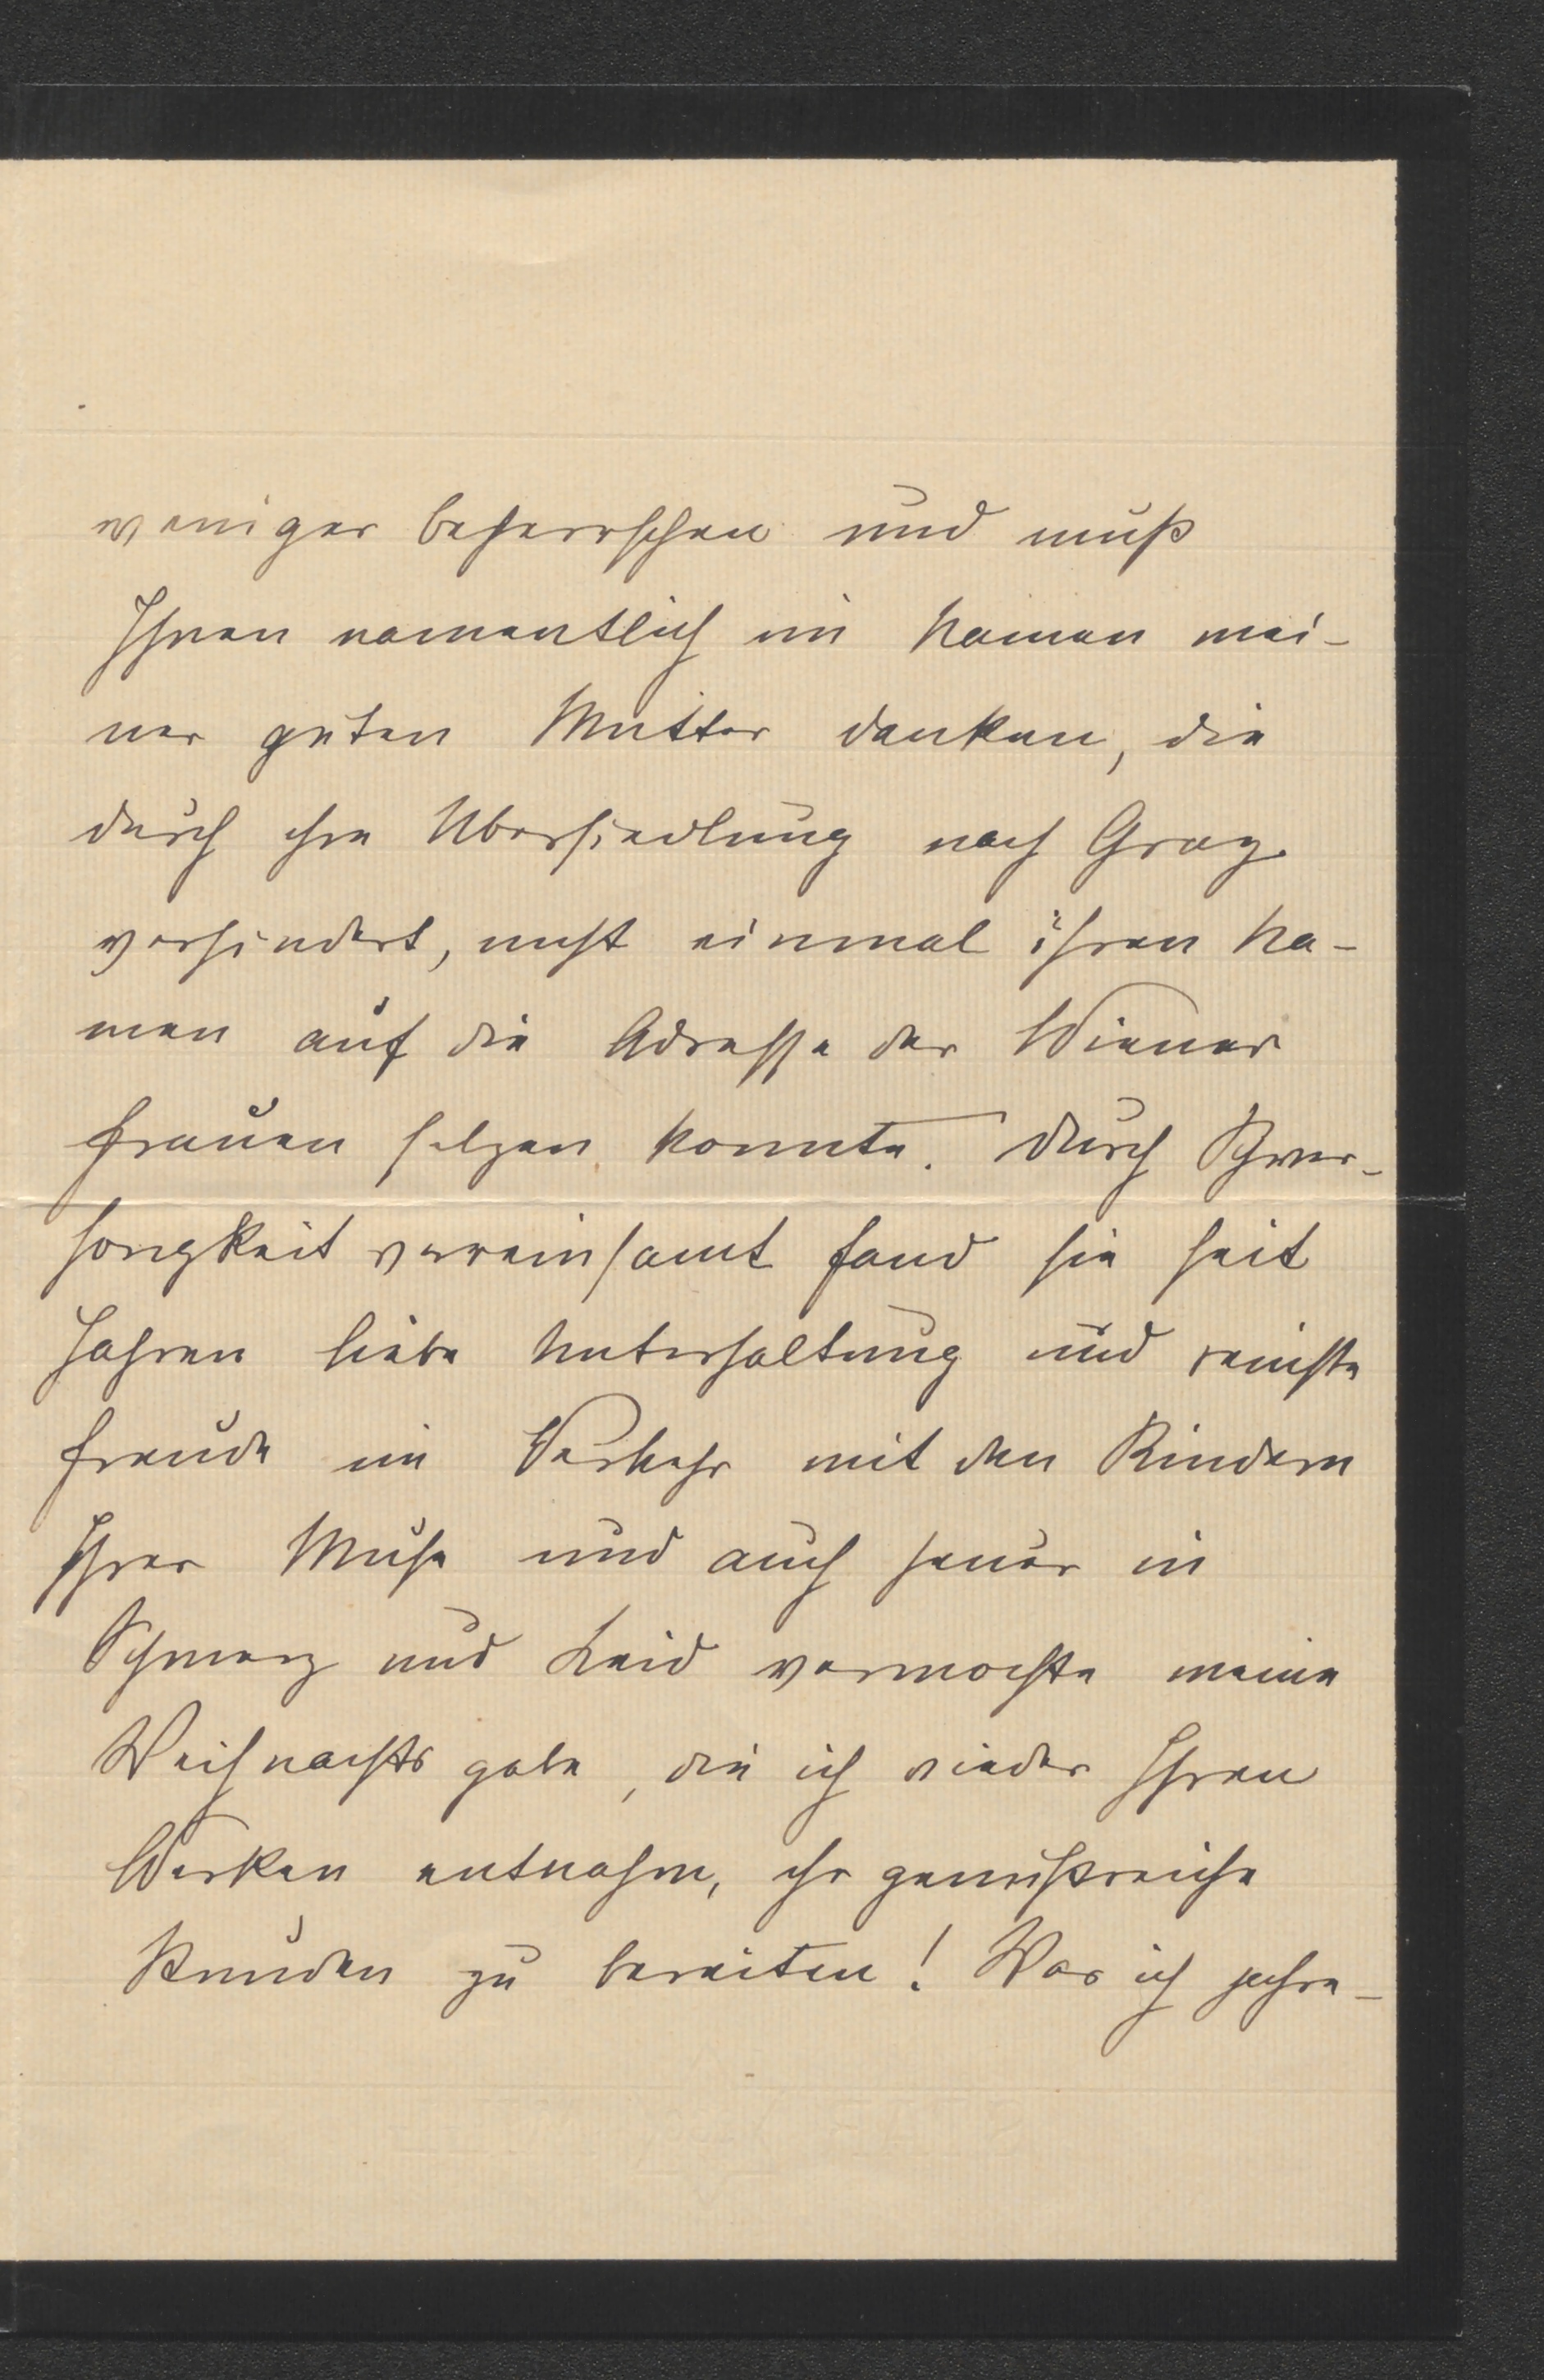 weniger beherrschen und muß
Ihnen namentlich im Namen mei-
ner guten Mutter danken, die
durch ihre Übersiedlung nach Graz
verhindert, nicht einmal ihren Na-
men auf die Adresse der Wiener
Frauen setzen konnte. Durch Schwer-
hörigkeit vereinsamt fand sie seit
Jahren liebe Unterhaltung und reinste
Freude im Verkehr mit den Kindern
Ihrer Muse und auch heuer in
Schmerz und Leid vermochte meine
Weihnachtsgabe, die ich wieder Ihren
Werken entnahm, ihr genußreiche
Stunden zu bereiten! Was ich jahre-